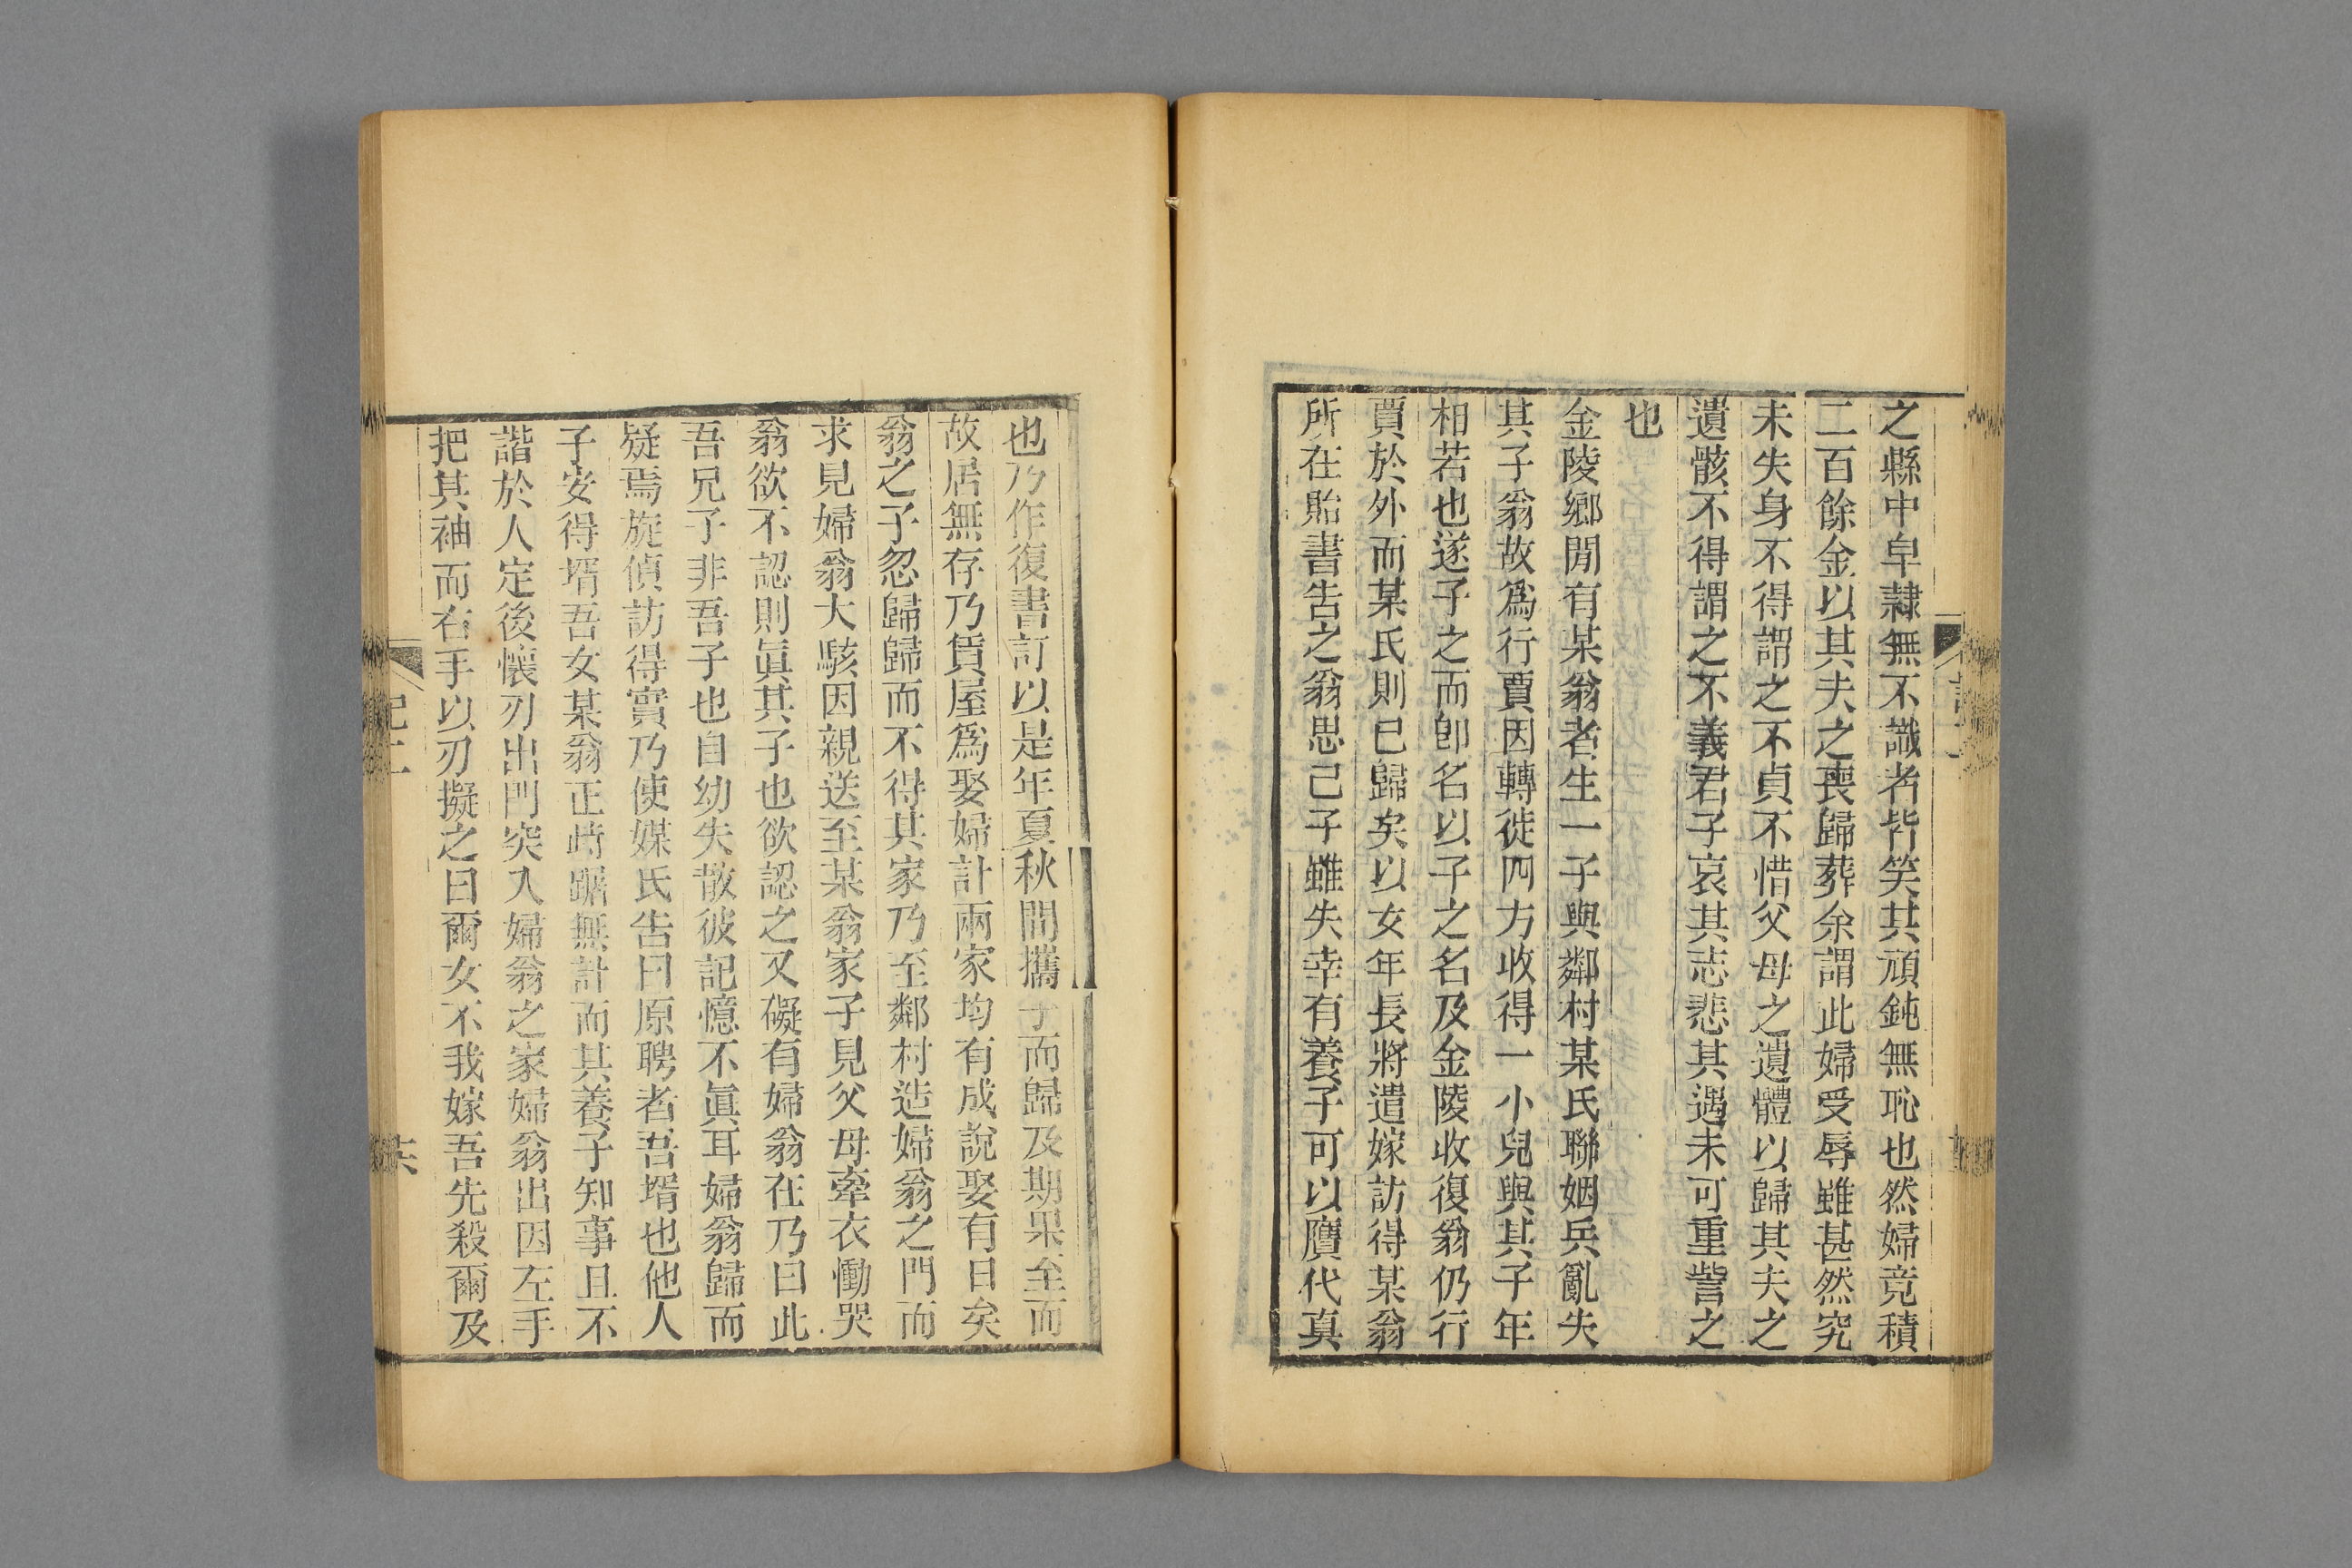 之縣中皁隸無不識者皆笑其頑鈍無恥也然婦竟積
二百餘金以其夫之喪歸葬余謂此婦受辱雖甚然究
未失身不得謂之不貞不惜父母之遺體以歸其夫之
遺骸不得謂之不義君子哀其志悲其遇未可重訾之
也
金陵鄉閒有某翁者生一子與鄰村某氏聯姻兵亂失
其子翁故爲行賈因轉徙四方收得一小兒與其子年
相若也遂子之而卽名以子之名及金陵收復翁仍行
賈於外而某氏則已歸矣以女年長將遣嫁訪得某翁
所在貽書告之翁思己子雖失幸有養子可以贗代真
也乃作復書訂以是年夏秋間攜子而歸及期果至而
故居無存乃賃屋爲娶婦計兩家均有成說娶有日矣
翁之子忽歸歸而不得其家乃至鄰村造婦翁之門而
求見婦翁大駭因親送至某翁家子見父母牽衣慟哭
翁欲不認則眞其子也欲認之又礙有婦翁在乃曰此
吾兄子非吾子也自幼失散彼記憶不眞耳婦翁歸而
疑焉旋偵訪得實乃使媒氏告曰原聘者吾壻也他人
子安得壻吾女某翁正躊躇無計而其養子知事且不
諧於人定後懷刃出門突入婦翁之家婦翁出因左手
把其袖而右手以刃擬之曰爾女不我嫁吾先殺爾及
記二
共